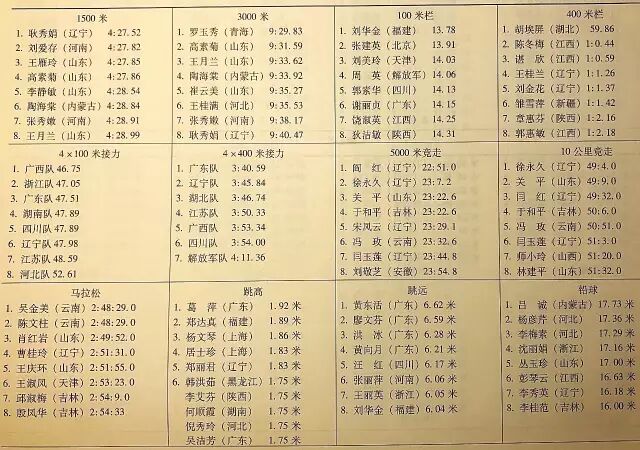 1500 米
1. 耿秀娟（辽宁）4:27.52
2. 刘爱存（河南）4:27.82
3. 王雁玲（山东）4:27.85
4. 高素菊（山东）4:27.86
5. 李静敏（山东）4:28.54
6. 陶海棠（内蒙古）4:28.84
7. 张秀嫩（河南）4:28.91
8. 王月兰（山东）4:28.99
3000 米
1. 罗玉秀（青海）9:29.83
2. 高素菊（山东）9:31.59
3. 王月兰（山东）9:33.62
4. 陶海棠（内蒙古）9:33.92
5. 崔云美（山东）9:35.27
6. 王桂满（河北）9:35.53
7. 张秀嫩（河南）9:38.51
8. 耿秀娟（辽宁）9:40.47
100 米栏
1. 刘华金（福建）13.78
2. 张建英（北京）13.91
3. 刘美玲（天津）14.03
4. 周 英（解放军）14.06
5. 郭素华（四川）14.13
6. 谢丽贞（广东）14.15
7. 饶淑英（江西）14.21
8. 狄洁敏（陕西）14.31
400 米栏
1. 胡埃屏（湖北）59.86
2. 陈冬梅（江西）1:0.44
3. 谌 欣（江西）1:0.59
4. 王桂兰（辽宁）1:1.26
5. 刘金花（辽宁）1:1.37
6. 雏雪萍（新疆）1:1.42
7. 章惠芬（陕西）1:1.81
8. 郭惠敏（江西）1:1.18
4×100 米接力
1. 广西队 46.75
2. 浙江队 47.05
3. 广东队 47.51
4. 湖南队 47.89
5. 四川队 47.89
6. 辽宁队 47.98
7. 江苏队 48.59
8. 河北队 52.61
4×400 米接力
1. 广东队 3:40.59
2. 辽宁队 3:45.84
3. 湖北队 3:46.74
4. 江苏队 3:50.33
5. 广西队 3:53.34
6. 四川队 3:54.00
7. 解放军队 4:11.36
5000 米竞走
1. 阎 红（辽宁）22:51.0
2. 徐永久（辽宁）23:7.2
3. 关 平（山东）23:22.6
4. 于和平（吉林）23:22.6
5. 宋凤云（辽宁）23:29.1
6. 冯 玫（云南）23:32.6
7. 闫玉莲（辽宁）23:44.8
8. 刘敬芝（安徽）23:54.8
10 公里竞走
1. 徐永久（辽宁）49:4.0
2. 关 平（山东）49:8.0
3. 闫 红（辽宁）49:32.0
4. 于和平（吉林）50:6.0
5. 冯 玫（云南）50:51.0
6. 闫玉莲（辽宁）51:3.0
7. 师小玲（山西）51:3.0
8. 林建平（山东）51:32.0
马拉松
1. 吴金美（云南）2:48:29.0
2. 陈文柱（云南）2:48:29.0
3. 肖红岩（山东）2:49:52.0
4. 曹桂玲（辽宁）2:51:31.0
5. 王庆环（山东）2:51:51.0
6. 王淑凤（天津）2:53:23.0
7. 邱淑梅（吉林）2:54:9.0
8. 殷凤华（吉林）2:54:33
跳高
1. 葛 萍（广东）1.92 米
2. 郑达真（福建）1.89 米
3. 杨文琴（上海）1.86 米
4. 居士珍（上海）1.83 米
5. 郑丽君（辽宁）1.83 米
6. 韩洪茹（黑龙江）1.75 米
李艾芬（陕西）1.75 米
何顺霞（湖南）1.75 米
倪秀玲（河北）1.75 米
吴洁芳（广东）1.75 米
跳远
1. 黄东活（广东）6.62 米
2. 廖文芬（广东）6.59 米
3. 洪 冰（广东）6.28 米
4. 黄向月（广东）6.21 米
5. 汪 红（四川）6.17 米
6. 张丽萍（河南）6.06 米
7. 王丽英（浙江）6.05 米
8. 刘华金（福建）6.04 米
铅球
1. 吕 诚（内蒙古）17.73 米
2. 杨彦芹（河北）17.36 米
3. 李梅素（河北）17.29 米
4. 沈丽娟（浙江）17.16 米
5. 丛玉珍（山东）17.00 米
6. 彭琴云（江西）16.63 米
7. 李秀英（辽宁）16.18 米
8. 李桂范（吉林）16.00 米